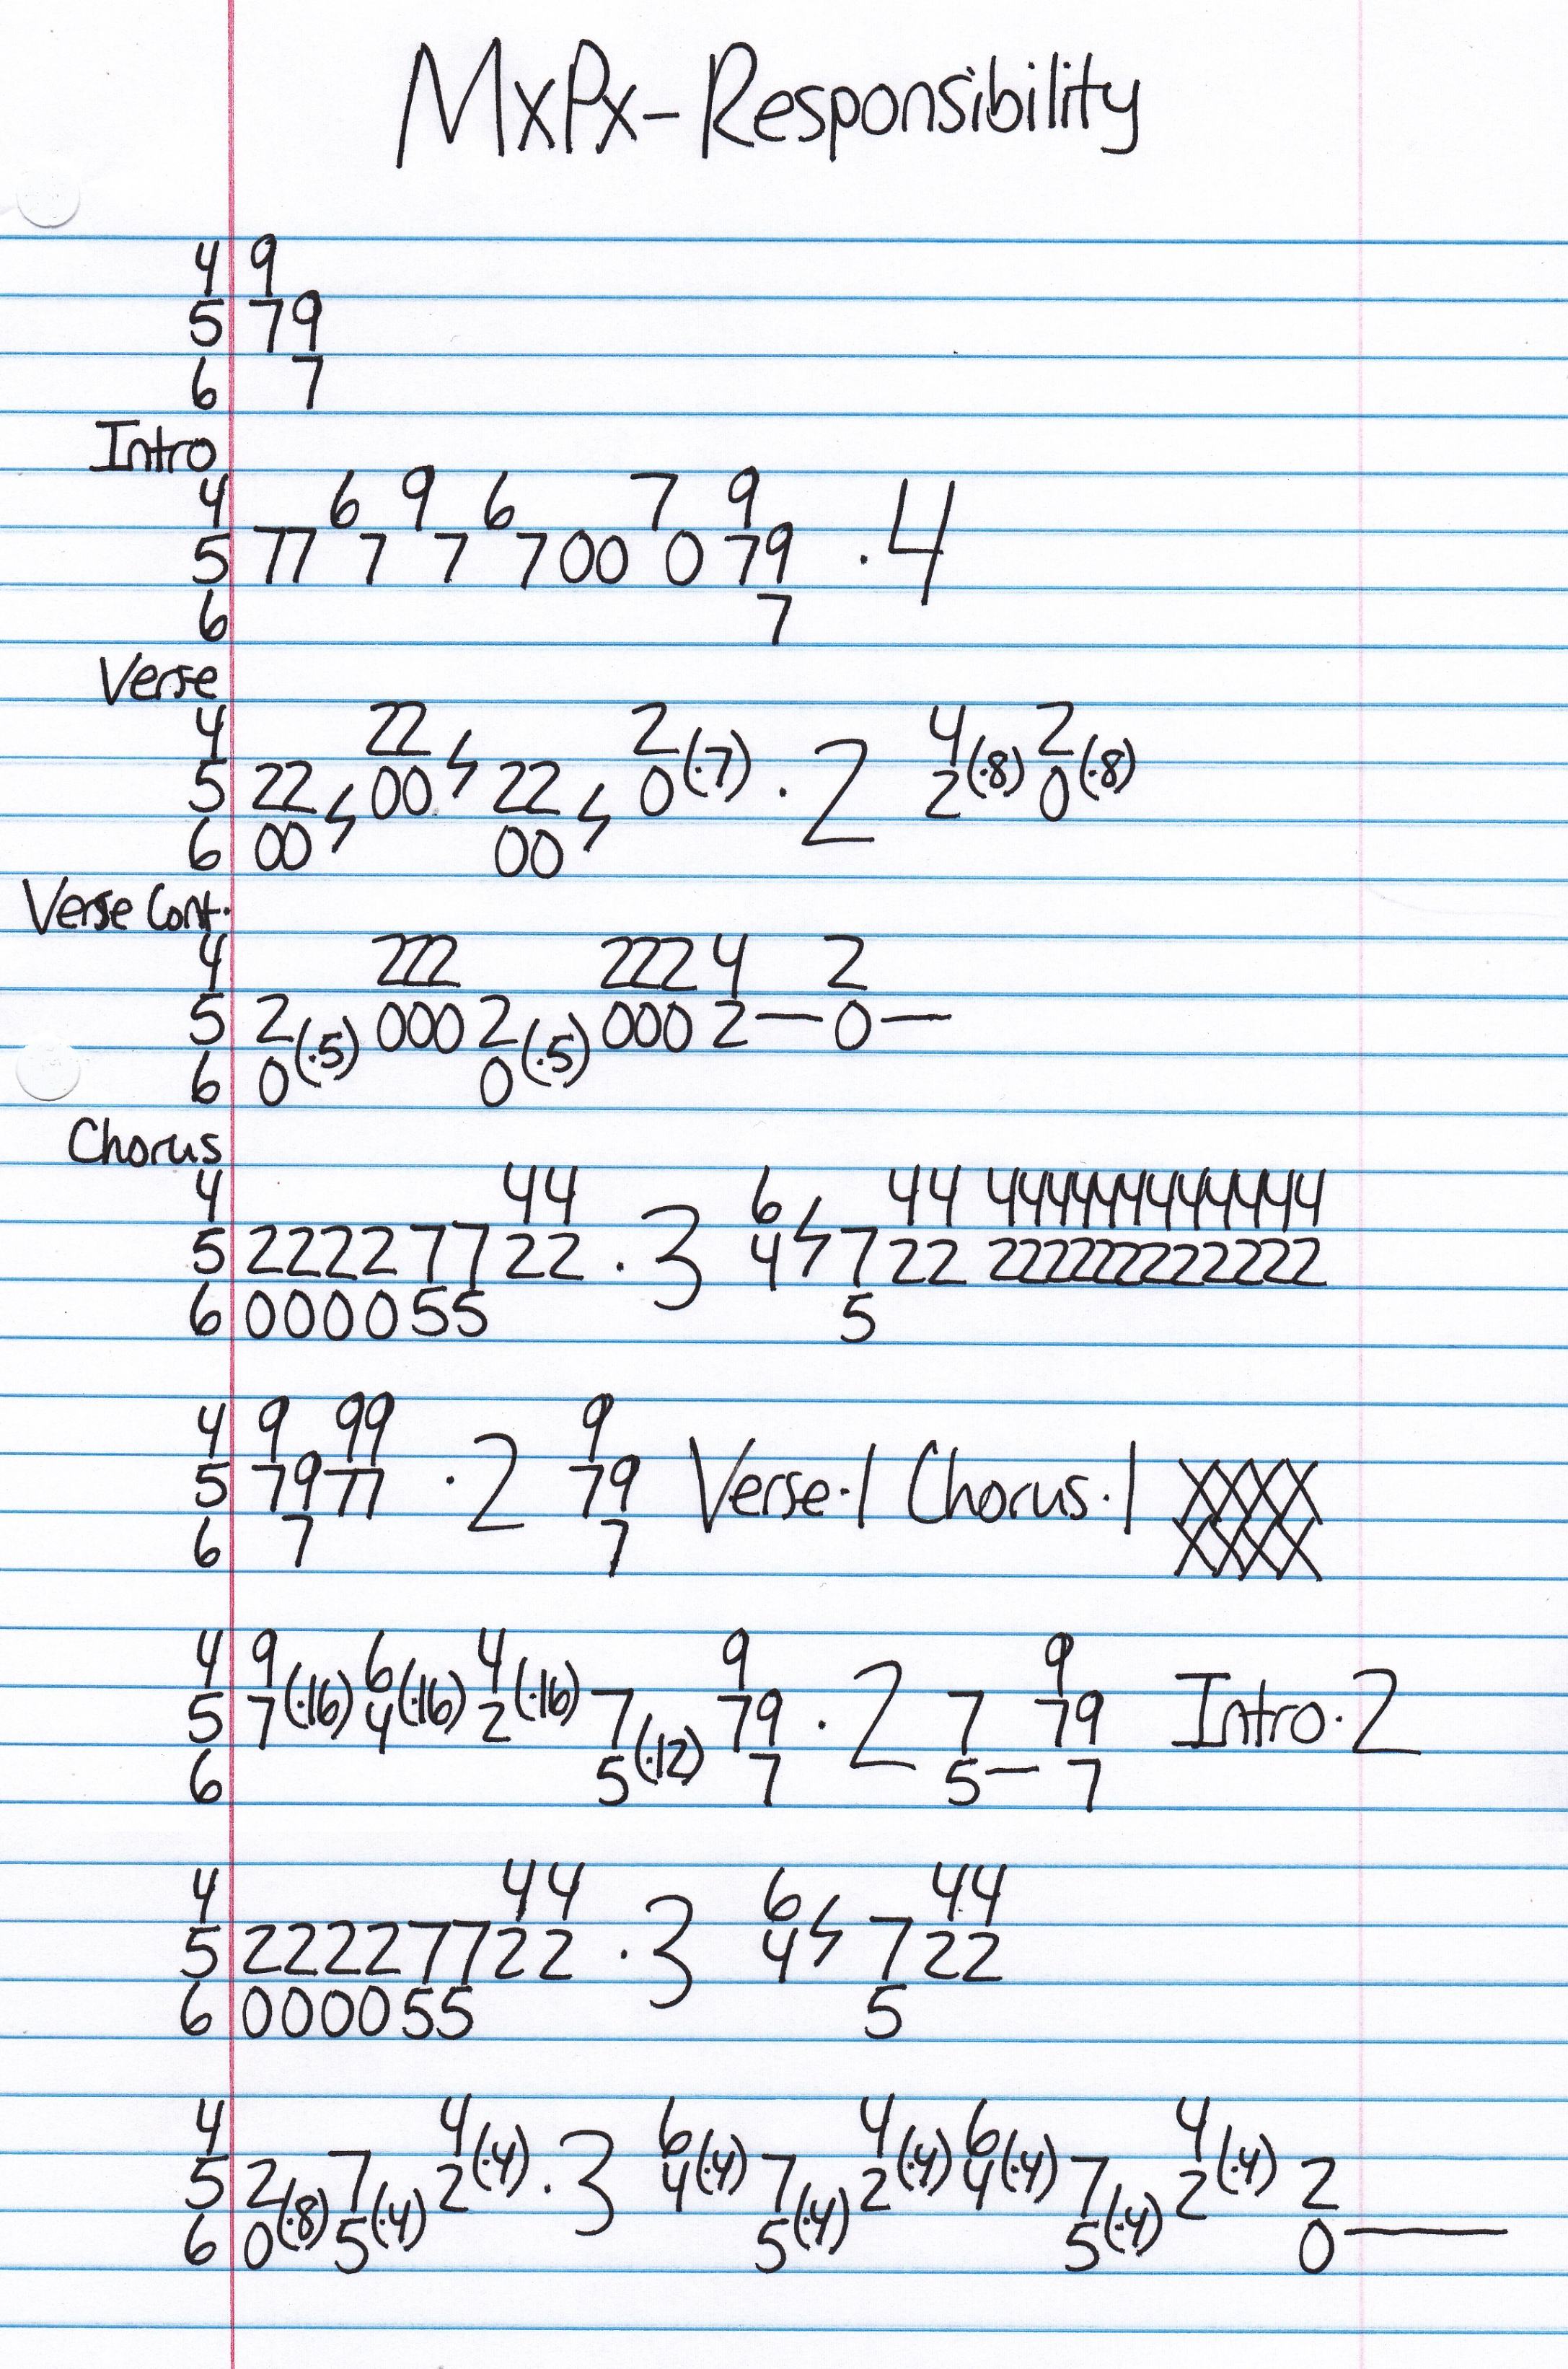 MxPx-Responsibility
4 9
5 79
6 7
Intro
4 6 9 6 7 9
5 77 7 7 700 0 79 ·4
6 7
Verse
4 22 2 4 2
5 22 00 22 0(·7) ·2 2(·8) 0(·8)
6 00 00
Verse Cont.
4 222 222 4 2
5 2(·5) 000 2(·5) 000 2— 0—
6 0 0
Chorus
4 44 6 44 44444444444
5 22227722 ·3 4 7 22 22222222222
6 000055 5
4 9 99 9
5 7977 ·2 79 Verse·1 Chorus·1 XXXX
6 7 7 XXXX
4 9 6 4 9 9
5 7(·16) 4(·16) 2(·16) 7 79 ·2 7 79 Intro·2
6 5(·12) 7 5— 7
4 44 6 44
5 22227722 ·3 4 722
6 000055 5
4 4 6 4 6 4
5 2 7 2(·4) ·3 4(·4) 7 2(·4) 4(·4) 7 2(·4) 2
6 0(·8) 5(·4) 5(·4) 5(·4) 0—